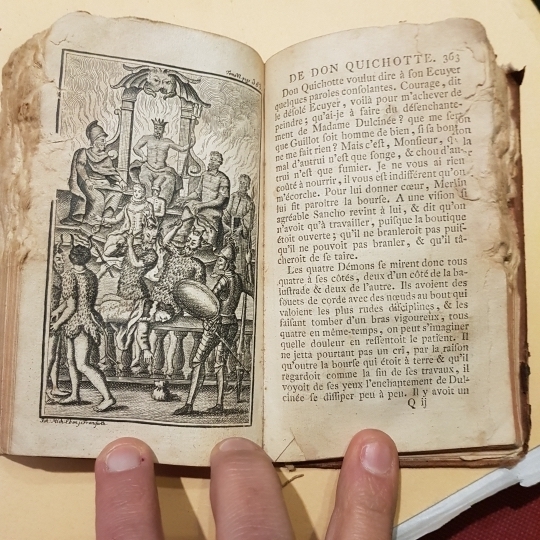 DE DON QUICHOTTE. 363
Don Quichotte voulut dire à son Ecuyer
quelques paroles consolantes. Courage, dit
le désolé Ecuyer, voilà pour m'achever de
peindre; qu'ai-je à faire du désenchante-
ment de Madame Dulcinée? que me
que Guillot soit homme de bien, si sa
ne me fait rien? Mais c'est, Monsieur, la
mal d'autrui n'est que songe, & chou d'au-
trui n'est que fumier. Je ne vous ai rien
coûté à nourrir, il vous est indifférent qu'on
m'écorche. Pour lui donner cœur, Merlin
lui fit paroître la bourse. A une vision si
agréable Sancho revint à lui, & dit qu'on
n'avoit qu'à travailler, puisque la boutique
étoit ouverte; qu'il ne branleroit pas puis-
qu'il ne pouvoit pas branler, & qu'il tâ-
cheroit de se taire.
Les quatre Démons se mirent donc tous
quatre à ses côtés, deux d'un côté de la ba-
lustrade & deux de l'autre. Ils avoient des
fouets de corde avec des nœuds au bout qui
valoient les plus rudes disciplines, & les
faisant tomber d'un bras vigoureux, tous
quatre en même-temps, on peut s'imaginer
quelle douleur en ressentoit le patient. Il
ne jetta pourtant pas un cri, par la raison
qu'outre la bourse qui étoit à terre & qu'il
regardoit comme la fin de ses travaux, il
voyoit de ses yeux l'enchantement de Dul-
cinée se dissiper peu à peu. Il y avoit un
Q ij